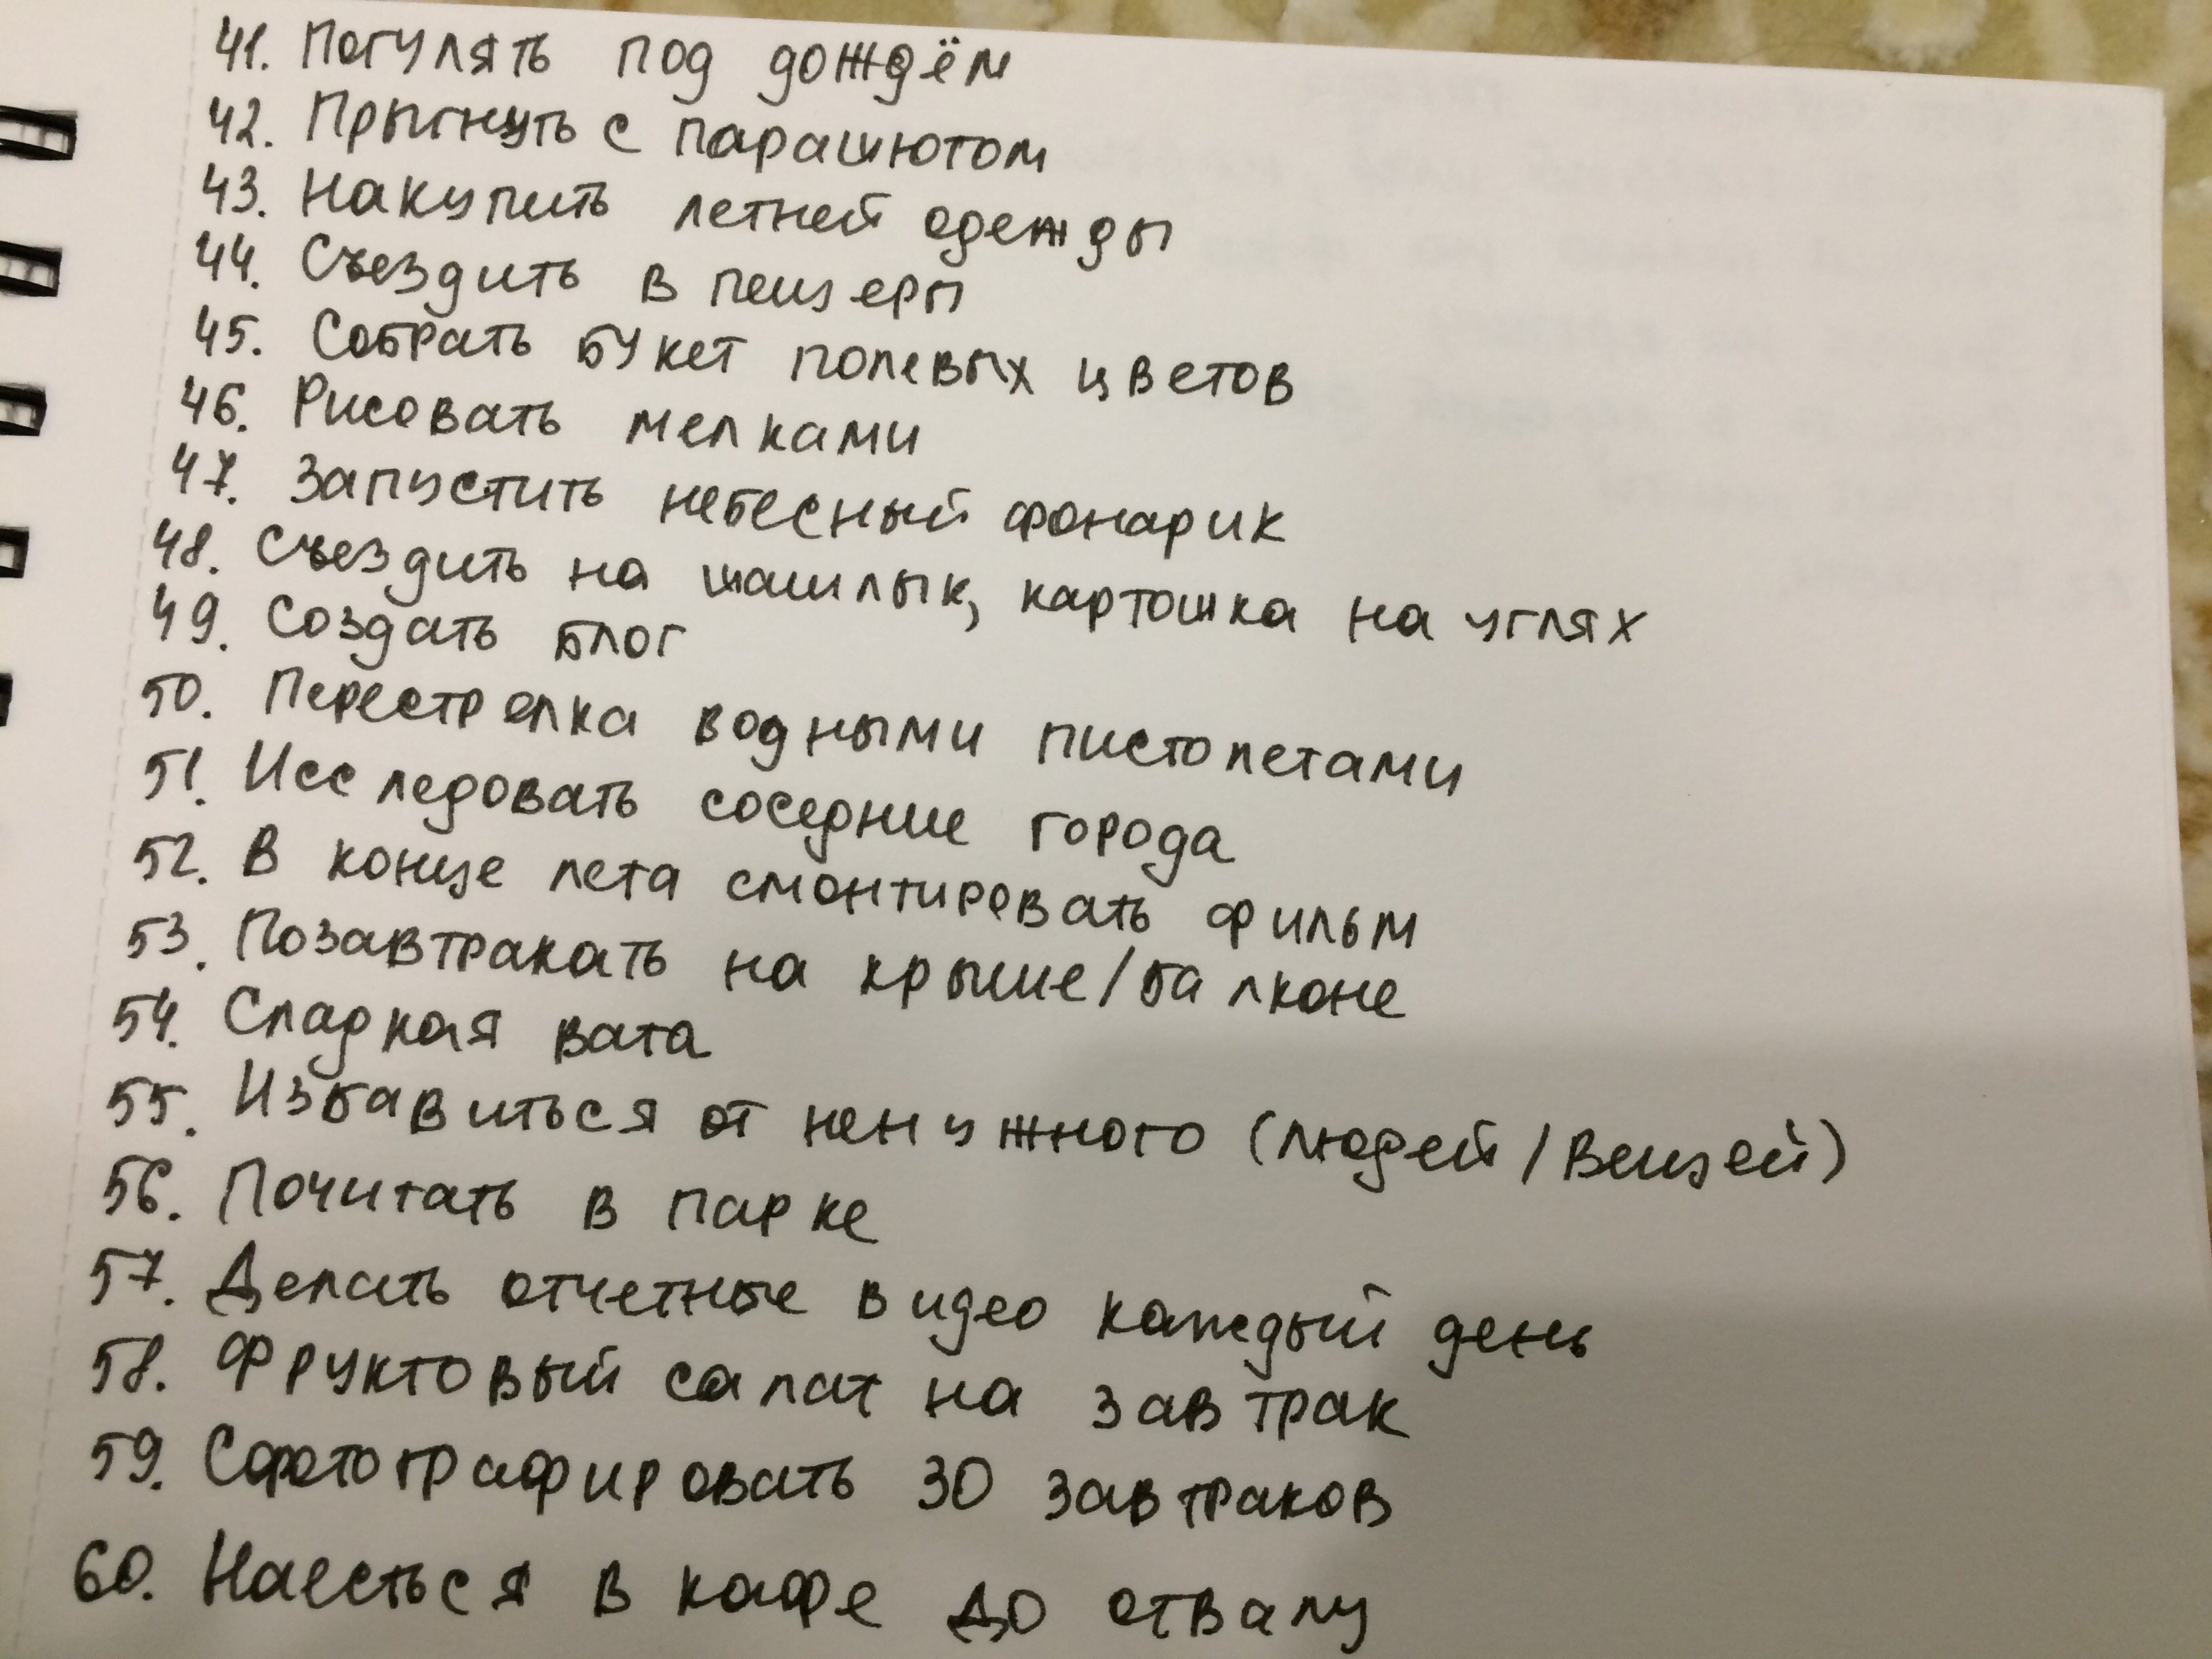 41. Погулять под дождём
42. Прыгнуть с парашютом
43. Накупить летней одежды
44. Съездить в пещеры
45. Собрать букет полевых цветов
46. Рисовать мелками
47. Запустить небесный фонарик
48. Съездить на шашлык, картошка на углях
49. Создать блог
50. Перестрелка водными пистолетами
51. Исследовать соседние города
52. В конце лета смонтировать фильм
53. Позавтракать на крыше/балконе
54. Сладкая вата
55. Избавиться от ненужного (людей/вещей)
56. Почитать в парке
57. Делать отчетные видео каждый день
58. Фруктовый салат на завтрак
59. Сфотографировать 30 завтраков
60. Наесться в кафе до отвалу